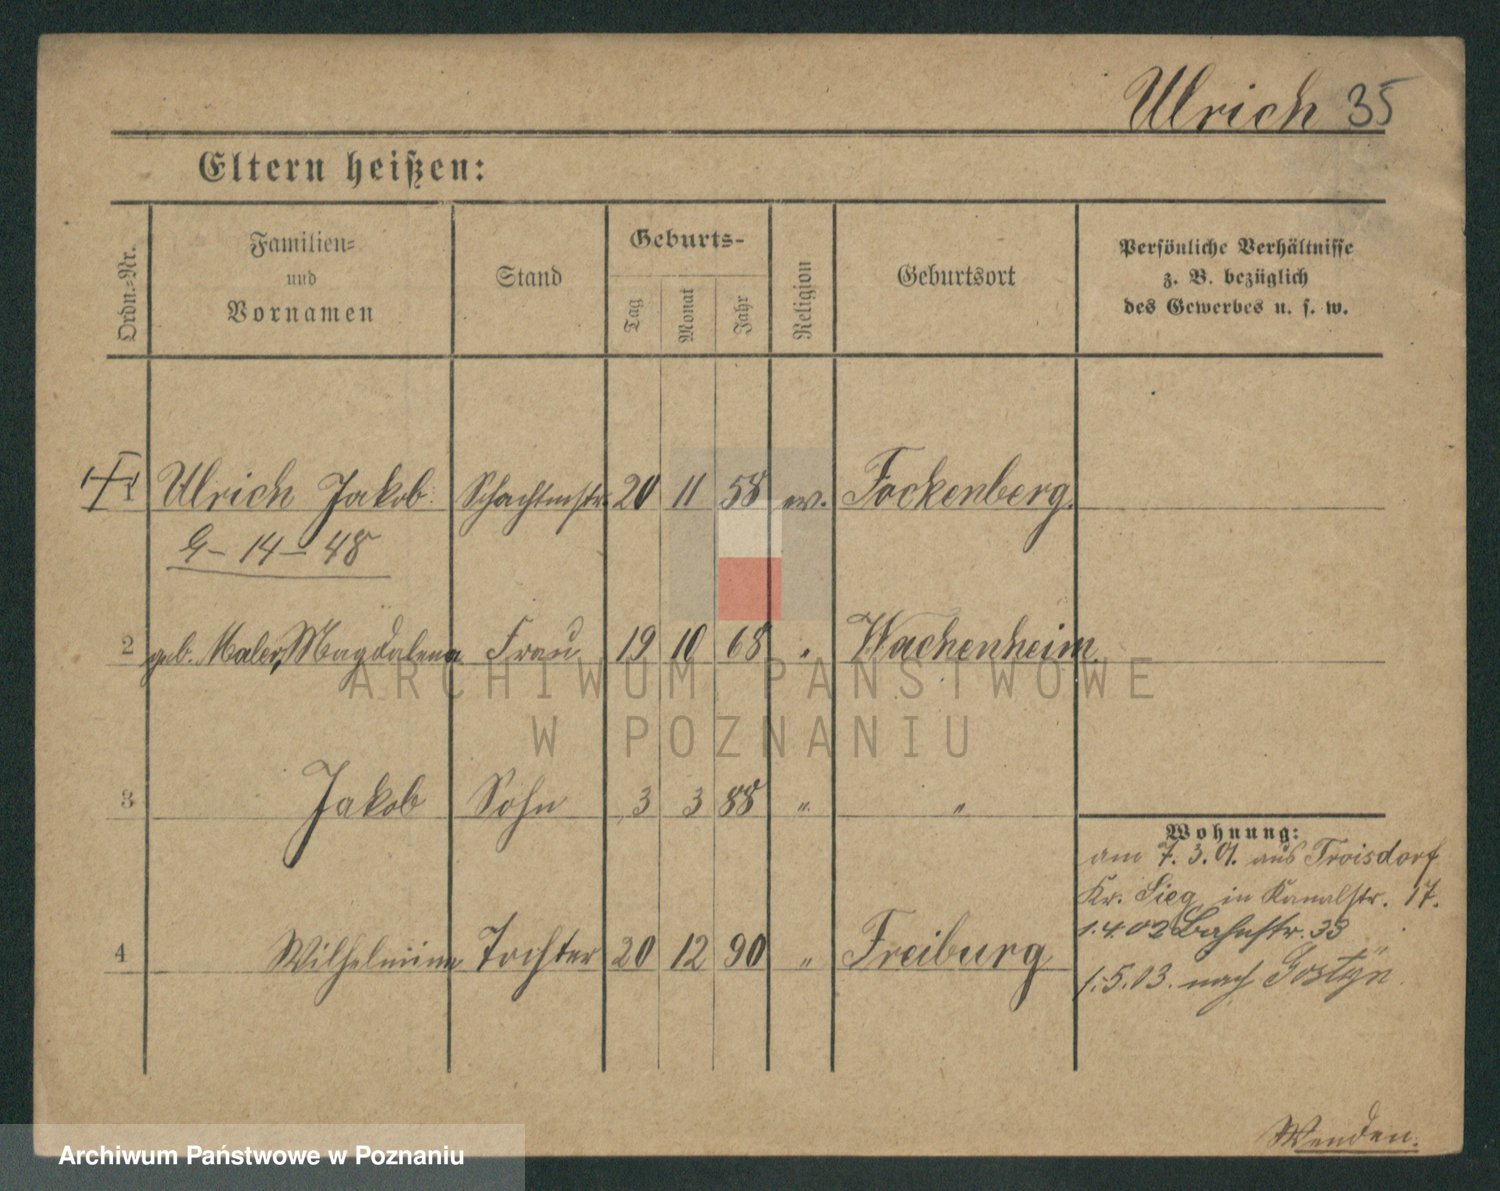 Ulrich 35
Eltern heißen:
Ordn.-Nr.
Familien-
und
Vornamen
Stand
Geburts-
Tag
Monat
Jahr
Religion
Geburtsort
Persönliche Verhältnisse
z. B. bezüglich
des Gewerbes u. s. w.
1 Ulrich Jakob Schachtmstr. 20 11 58 ev. Fockenberg.
9-14-48
2 geb. Maler, Magdalena Frau 19 10 68 " Wachenheim
ARCHIWUM PAŃSTWOWE
W POZNANIU
3 Jakob Sohn 3 3 88 " "
Wohnung:
am 7.3.01. aus Troisdorf
Kr. Sieg in Kanalstr. 17.
1.4.02 Bahnstr. 33
4 Wilhelmine Tochter 20 12 90 " Freiburg
1.5.03. nach Gostÿn.
Wenden.
Archiwum Państwowe w Poznaniu